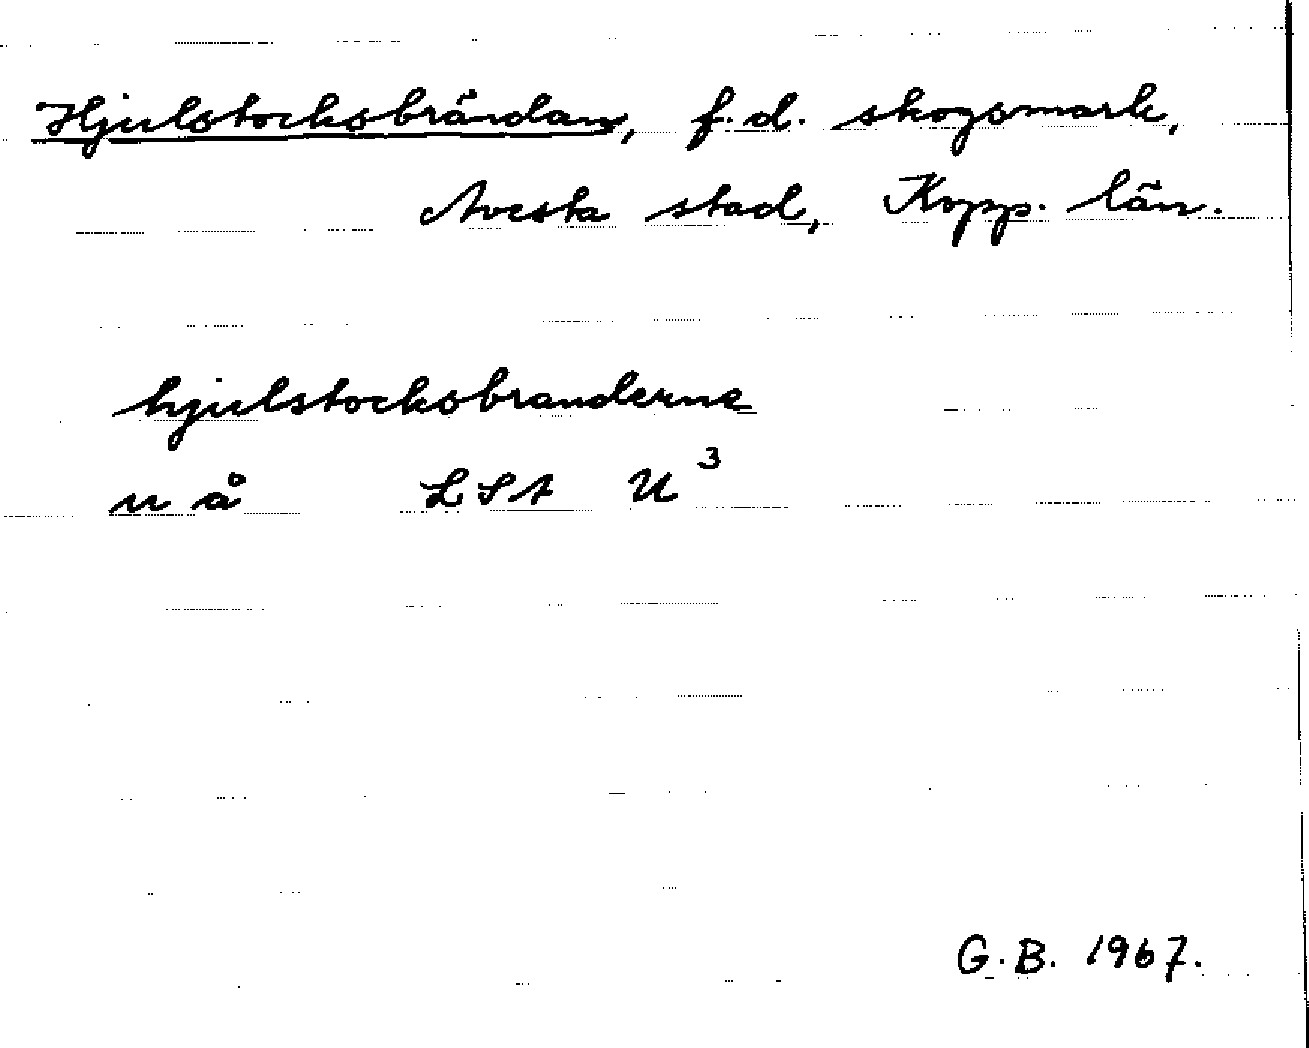 Hjulstocksbrändan, f.d. skogsmark,
Avesta stad, Kopp. län.
hjulstocksbranderne
u å LSA U³
G.B. 1967.